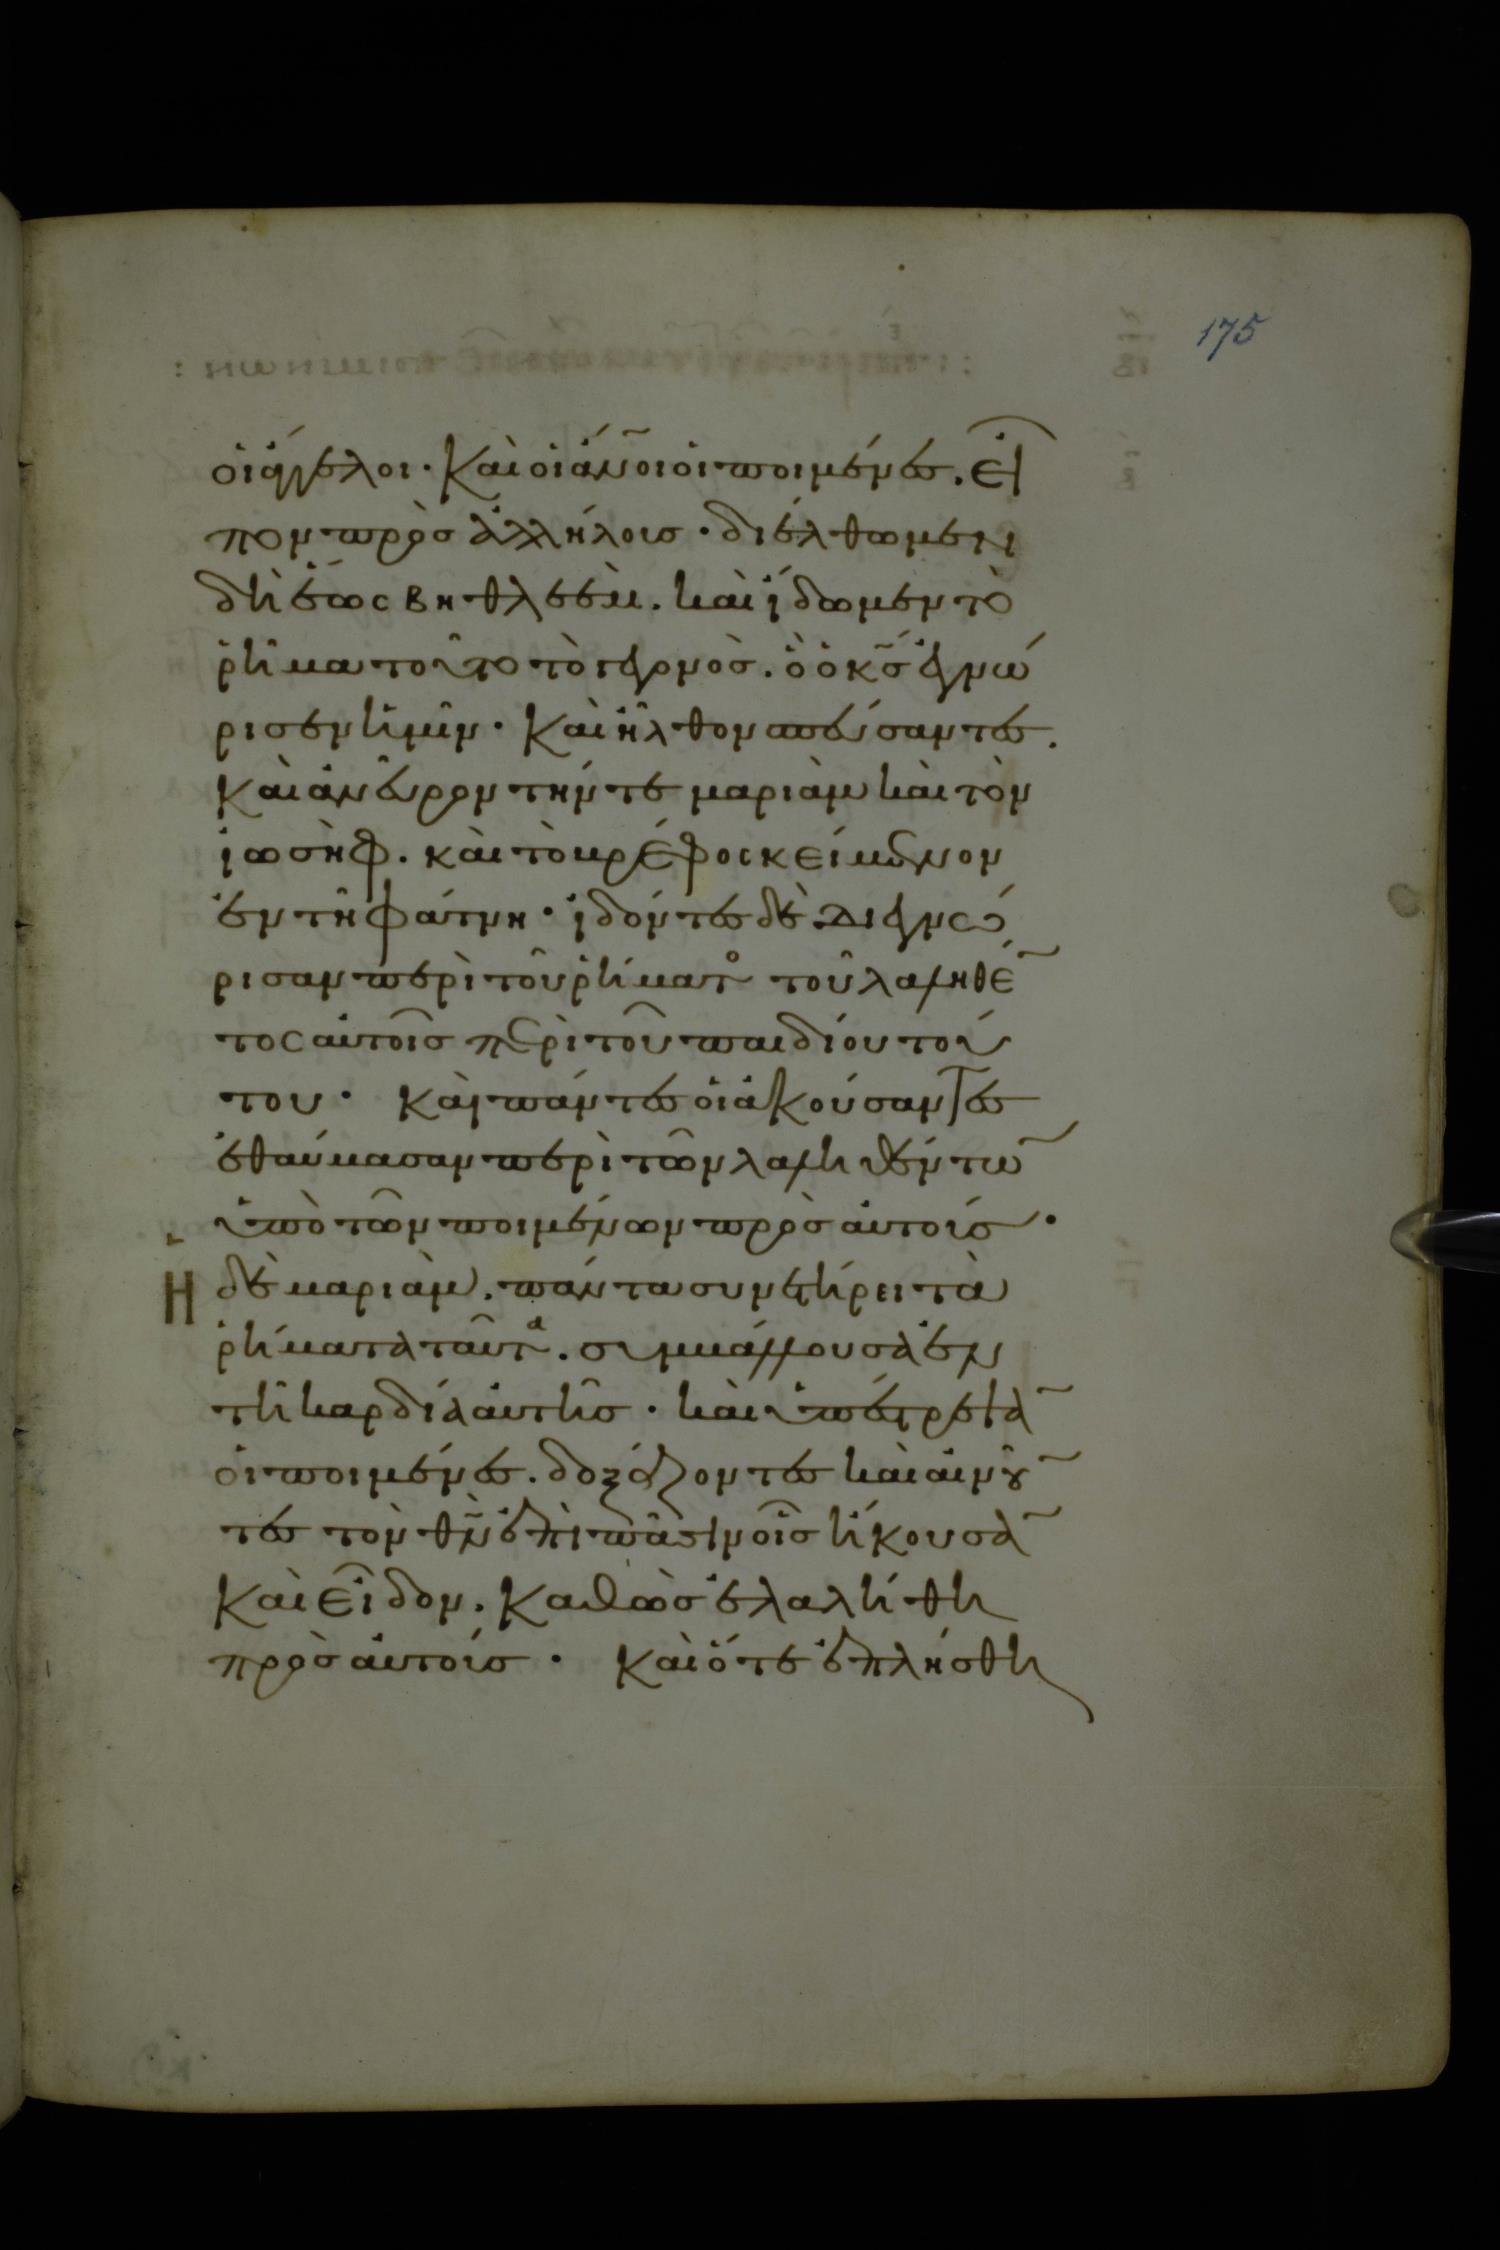 175
οἱ ἄγγελοι· Καὶ οἱ ἄν̅οι οἱ ποιμένες. εἶ
πον πρὸς ἀλλήλους· διέλθωμεν
δὴ ἕως βηθλεὲμ. καὶ ἴδωμεν τὸ
ῥῆμα τοῦτο τὸ γεγονὸς. ὃ ὁ κ̅ς ἐγνώ
ρισεν ἡμῖν· Καὶ ἦλθον σπεύσαντες.
Καὶ ἀνεῦρον τήν τε μαριὰμ καὶ τὸν
ἰωσὴφ. καὶ τὸ βρέφος κείμενον
ἐν τῆ φάτνη· ἰδόντες δὲ διεγνώ
ρισαν περὶ τοῦ ῥήματος τοῦ λαληθέ̅
τος αὐτοῖς περὶ τοῦ παιδίου τού
του· Καὶ πάντες οἱ ἀκούσαντες
ἐθαύμασαν περὶ τῶν λαληθέντω̅
ὑπὸ τῶν ποιμένων πρὸς αὐτούς·
Ἡ δὲ μαριὰμ. πάντα συνετήρει τὰ
ῥήματα ταῦτα. συμβάλλουσα ἐν
τῆ καρδία αὐτῆς· καὶ ὑπέστρεψα̅
οἱ ποιμένες. δοξάζοντες καὶ αἰνοῦ̅
τες τὸν θ̅ν ἐπὶ πᾶσιν οἷς ἤκουσα̅
Καὶ εἶδον. Καθὼς ἐλαλήθη
πρὸς αὐτούς· Καὶ ὅτε ἐπλήσθη